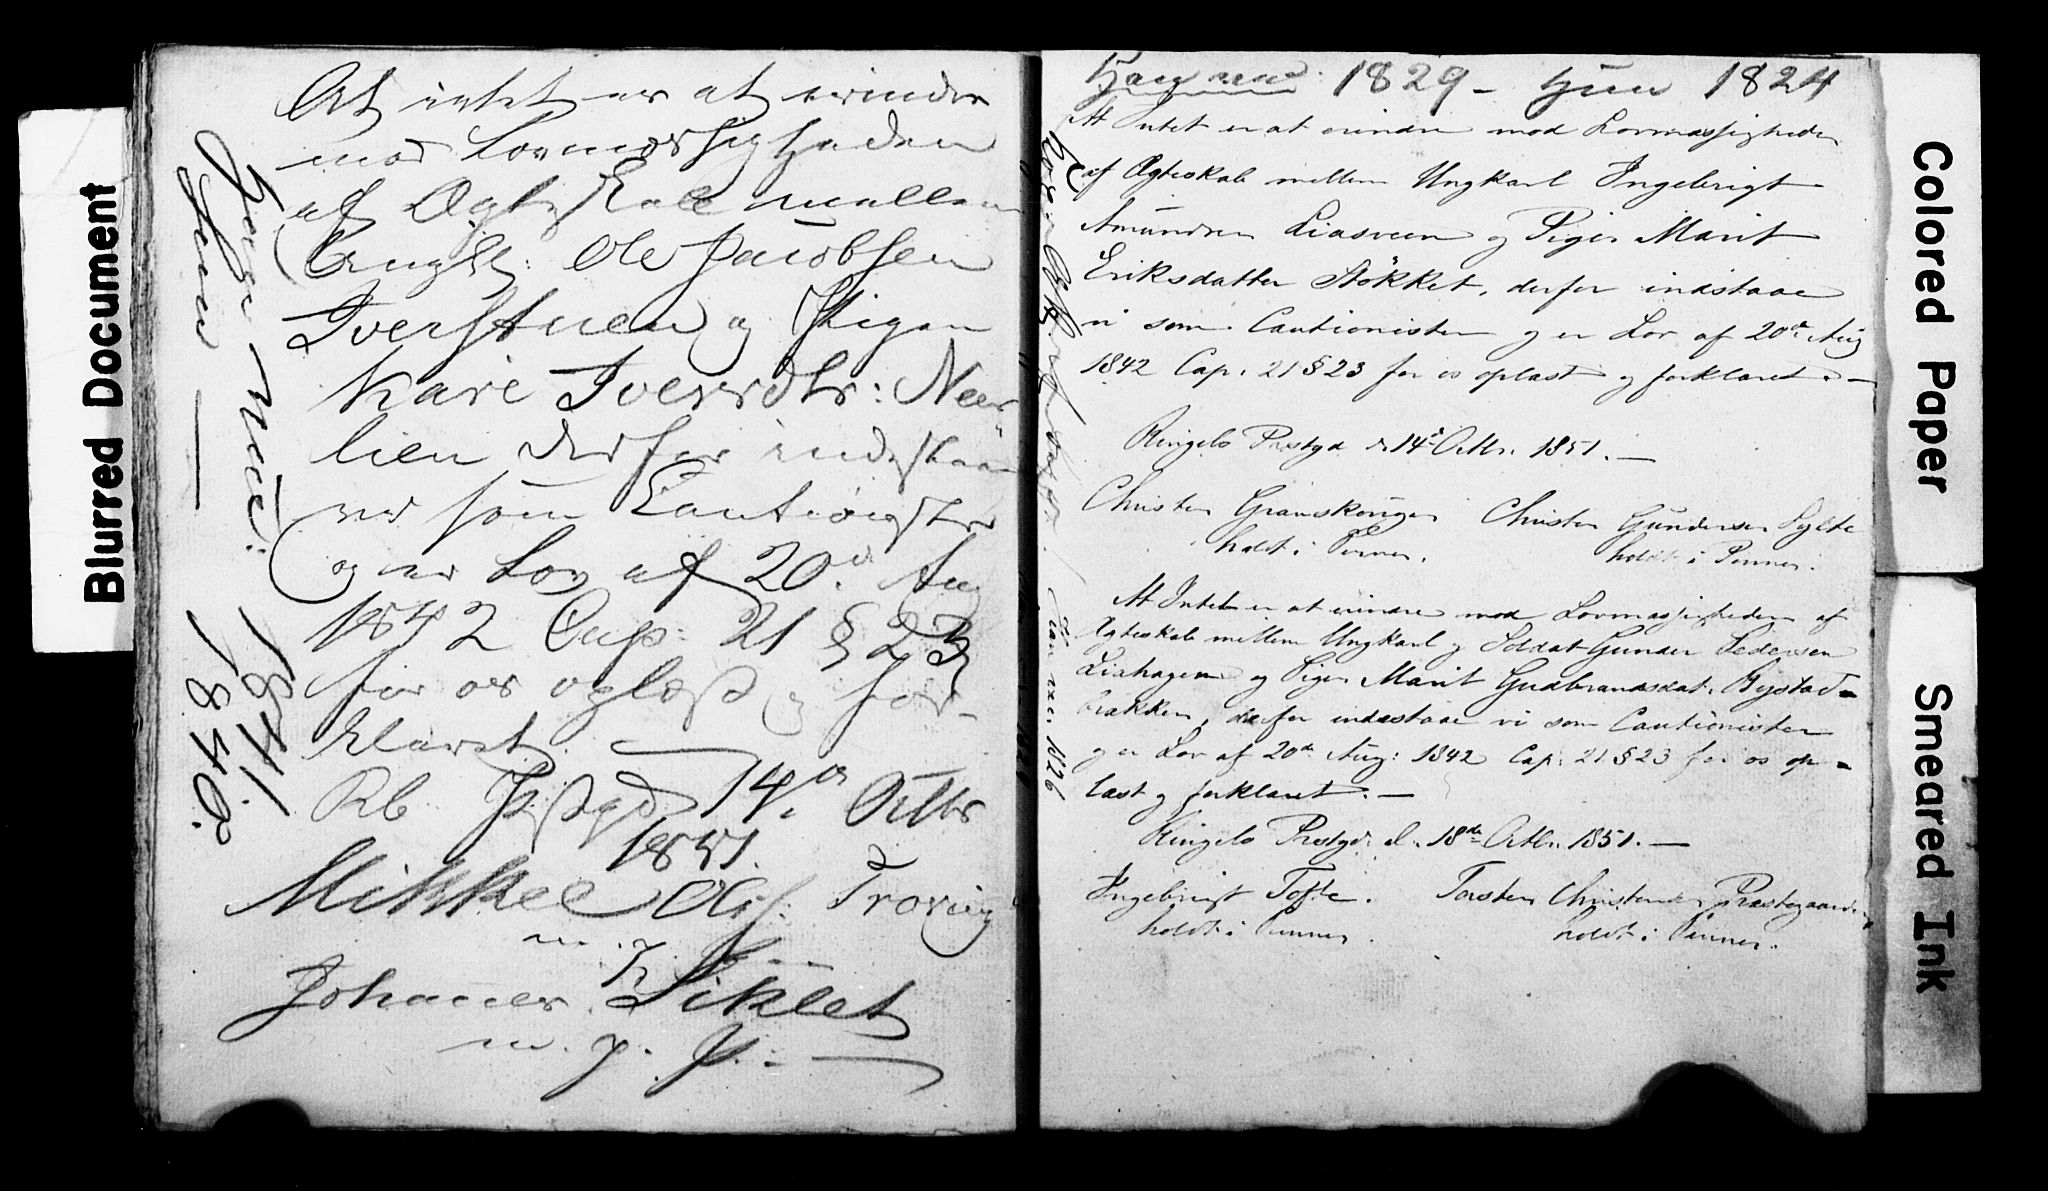 At intet er at erindre
mod Lovmæssigheden
af Ægteskab mellem
Ungk: Ole Jacobsen
Iverstuen og Pigen
Kari Iversdtr: Neer
lien derfor indestaae
vi som Cautionister
og er Lov af 20d Aug
1842 Cap: 21 § 23
for os oplæst og for-
klaret.
Rb Pstgd 14de Octbr
1851.
Mikkel Ols: Troring
m. p. P.
Johannes
m. p. P.
1841.
1840.
1829 - Hun 1824
At Intet er at erindre mod Lovmæssigheden
af Ægteskab mellem Ungkarl Ingebrigt
Amundsen Liasveen og Pigen Marit
Eriksdatter Stökket, derfor indestaae
vi som Cautionister og er Lov af 20de Aug
1842 Cap. 21 § 23 for os oplæst og forklaret. -
Ringebo Præstgd d. 14d Octbr. 1851. -
Christen Christen Gundersen Sylte
holdt i Pennen. holdt i Pennen.
At Intet er at erindre mod Lovmæssigheden af
Ægteskab mellem Ungkarl og Soldat Gunder Pedersen
Liahagen og Pigen Marit Gudbrandsdat. Bystad-
bakken, derfor indestaae vi som Cautionister
og er Lov af 20de Aug: 1842 Cap: 21 § 23 for os op-
læst og forklaret. -
Ringebo Præstgd. d. 18de Octbr. 1851. -
Ingebrigt Tofte. Torsten Christensen Præstegaarden
holdt i Pennen. holdt i Pennen.
1826
Blurred Document
Colored Paper
Smeared Ink